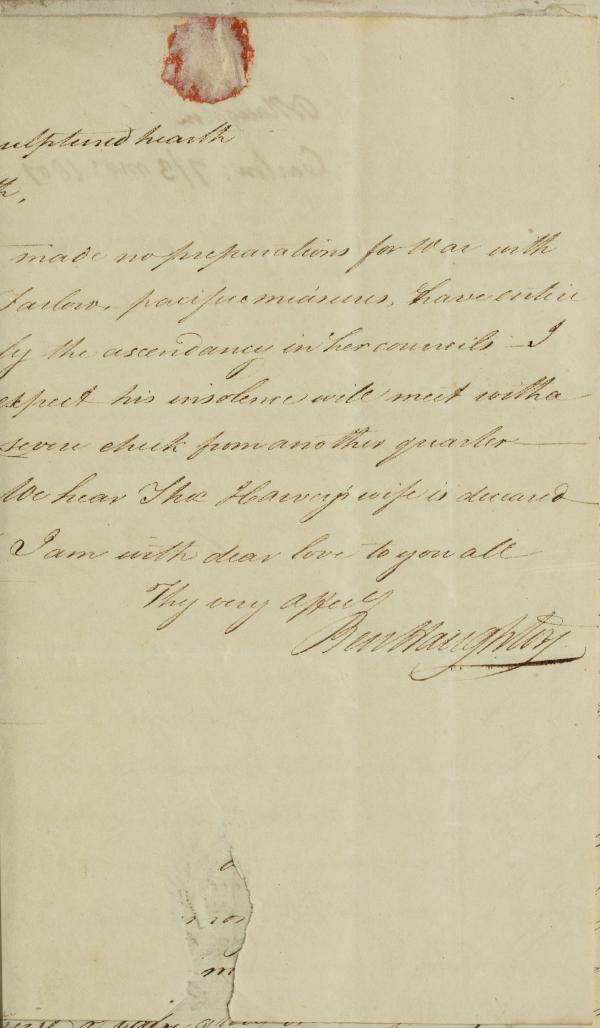 sculptured hearth
th,
made no preparations for War with
Farlow, pacific measures, have entire
ly the ascendancy in her councils – I
expect his insolence will meet with a
severe check from another quarter —
We hear Tho. Harvey's wife is deceased
I am with dear love to you all
Thy very affect.
Ben Haughton
m